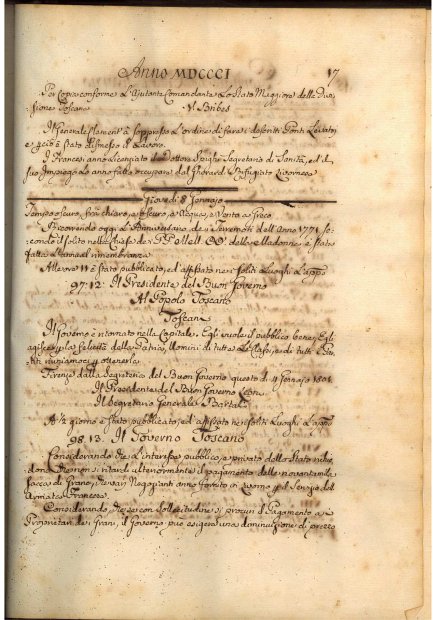 Anno MDCCCI 17
Per Copia conforme L'Ajutante Comandante Lo Stato Maggiore della Divi
sione Toscana
Il Generale Clement à soppresso L'ordine di fare i descritti Ponti Levatori
e perciò è stato dismesso il Lavoro.
I Francesi anno Licenziato del Dottore Spighi Segretario di Sanità, ed il
suo Impiego Lo anno fatto occupare dal Gherard Rifugiato Livornese
Giovedì 8 Gennajo
Tempo oscuro, fra chiaro, e oscuro, e Acqua, e Vento a Greco
Ricorrendo oggi L'Anniversario dei Terremoti dell'Anno 1771 se
condo il solito nella Chiesa de PP della Madonna è stata
fatta L'annual rimembranza
Alle ore 11 è stato pubblicato, ed affissato nei soliti Luoghi L'app
97.12. Il Presidente del Buon Governo
Al Popolo Toscano
Toscani
Il Governo è ritornato nella Capitale. Egli vuole il pubblico bene, Egli
agisce per la felicità della Patria, Uomini di tutte Le Classi, e di tutti
riuniamoci per ottenerla.
Firenze dalla Segreteria del Buon Governo questo dì 4 Gennajo 1801
Il Presidente del Buon Governo
Il Segretario Generale Bartal
A ½ giorno è stato pubblicato, ed affissato nei soliti Luoghi L'app
98.13. Il Governo Toscano
Considerando che L'interesse pubblico, e privato dello Stato richie
dono che non si ritardi ulteriormente il pagamento delle novantamila
sacca di Grano, che varj Negozianti anno fornito in Livorno per il servizio del
Armata Francese.
Considerando, che se con sollecitudine si procuri il Pagamento ai
Proprietari dei Grani, il Governo può esigere una diminuzione di prezzo